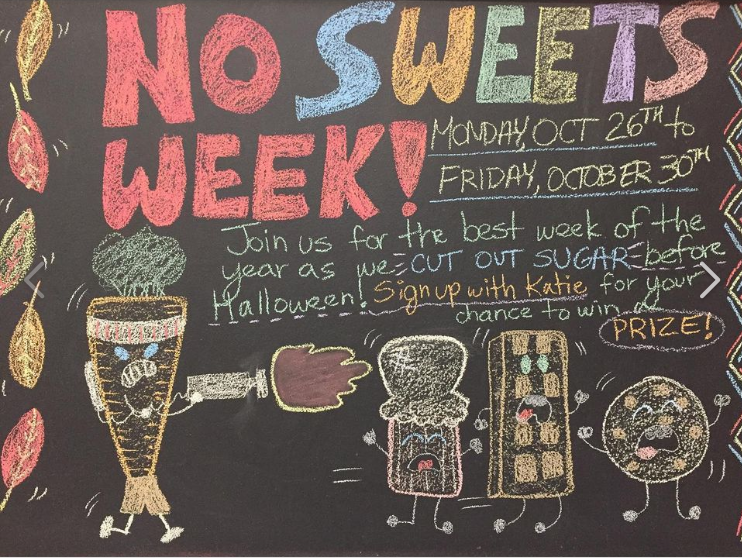 NO SWEETS
WEEK!
MONDAY, OCT 26TH to
FRIDAY, OCTOBER 30TH
Join us for the best week of the
year as we CUT OUT SUGAR before
Halloween! Sign up with Katie for your
chance to win a
PRIZE!